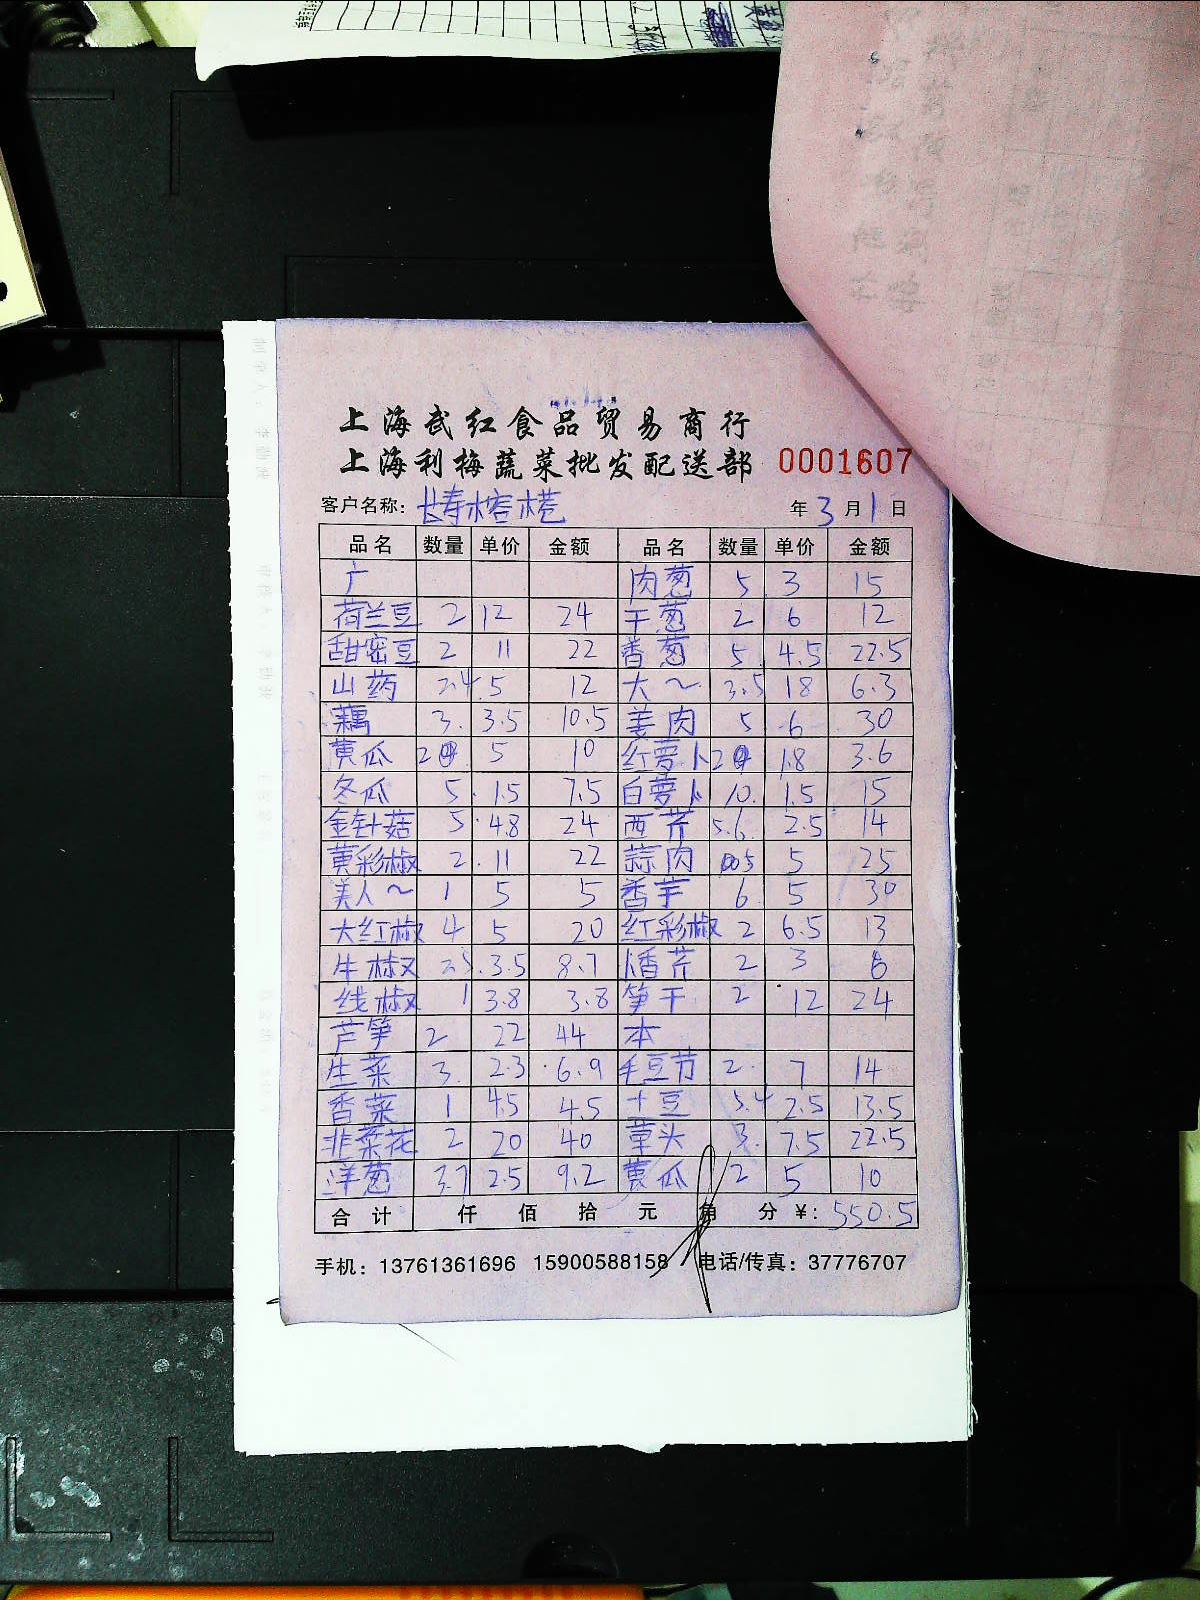 上海武红食品贸易商行
上海利梅蔬菜批发配送部 0001607
客户名称: 长寿 年 3 月 1 日
品名 数量 单价 金额 品名 数量 单价 金额
广 肉葱 5 3 15
荷兰豆 2 12 24 干葱 2 6 12
甜密豆 2 11 22 香葱 5 4.5 22.5
山药 2.4 5 12 大~ 3.5 18 6.3
藕 3 3.5 10.5 姜肉 5 6 30
黄瓜 2 5 10 红萝卜 2 1.8 3.6
冬瓜 5 1.5 7.5 白萝卜 10 1.5 15
金针菇 5 4.8 24 西芹 5.6 2.5 14
黄彩椒 2 11 22 蒜肉 5 5 25
美人~ 1 5 5 香芋 6 5 30
大红椒 4 5 20 红彩椒 2 6.5 13
牛椒 2.5 3.5 8.7 芹 2 3 6
线椒 1 3.8 3.8 笋干 2 12 24
芦笋 2 22 44 本
生菜 3 2.3 6.9 毛豆节 2 7 14
香菜 1 4.5 4.5 土豆 5.4 2.5 13.5
韭菜花 2 20 40 草头 3 7.5 22.5
洋葱 3.7 2.5 9.2 黄瓜 2 5 10
合计 仟 佰 拾 元 角 分 ¥: 550.5
手机：13761361696 15900588158 电话/传真：37776707